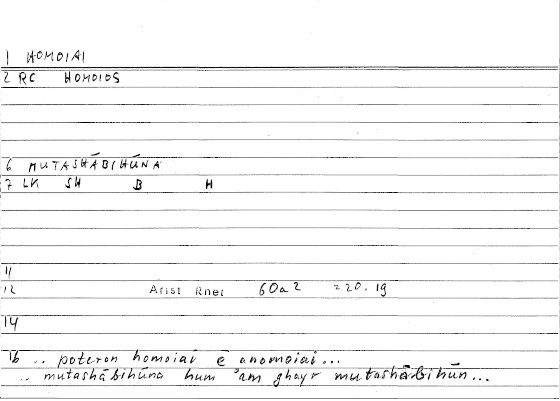 1 HOMOIAI
2 RC HOMOIOS
6 MUTASHĀBIHŪNA
7 LK SH B H
11
12 Arist Rhet 60a2 =20.19
14
16 .. poteron homoiai ē anomoiai...
.. mutashābihūna hum 'am ghayr mutashābihūn...